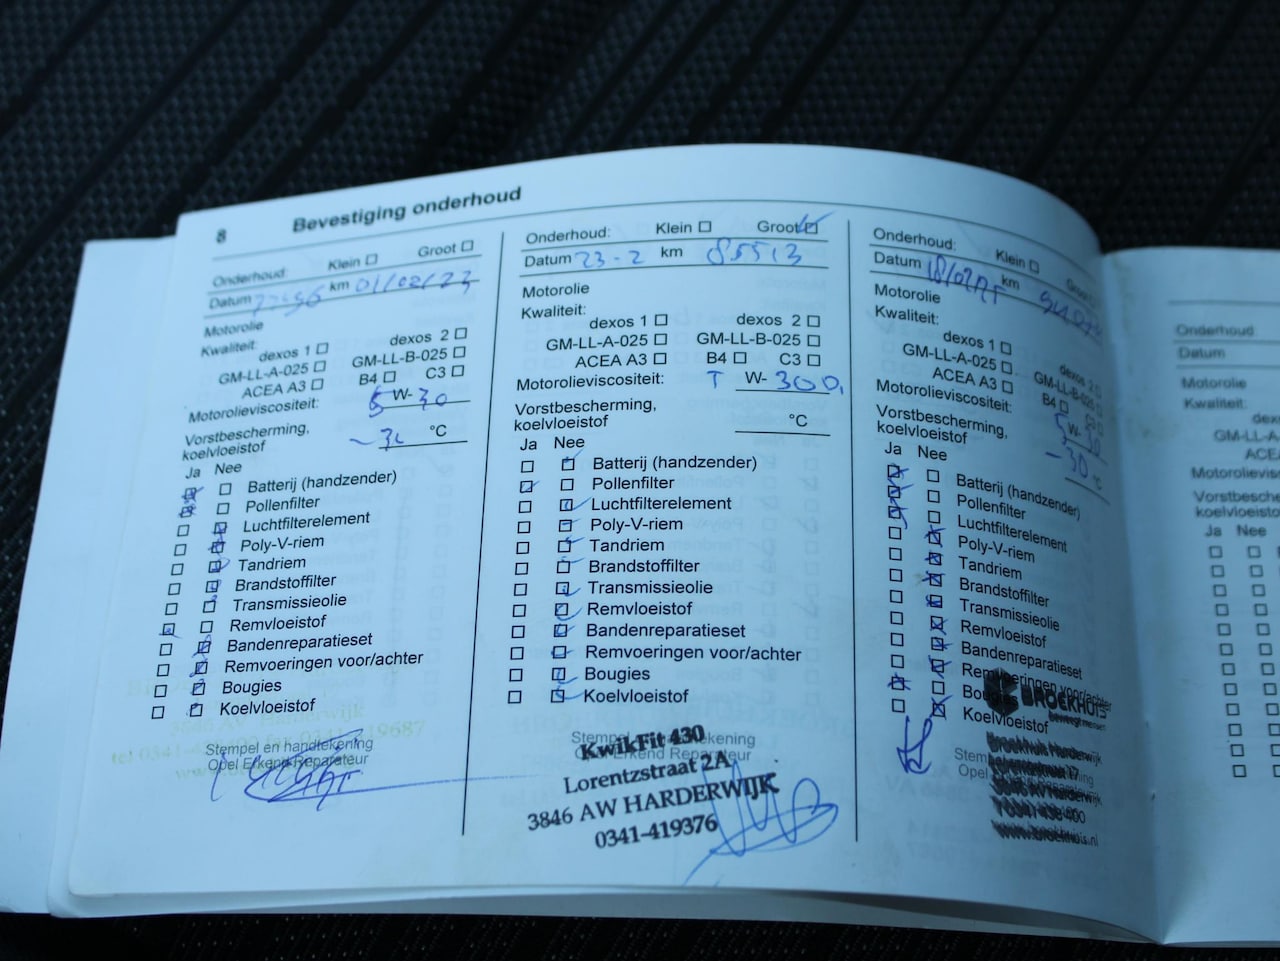 8 Bevestiging onderhoud
Onderhoud: Klein Groot
Datum km 01/02/23
Motorolie
Kwaliteit:
dexos 1 dexos 2
GM-LL-A-025 GM-LL-B-025
ACEA A3 B4 C3
Motorolieviscositeit: 5 W- 30
Vorstbescherming,
koelvloeistof °C
Ja Nee
Batterij (handzender)
Pollenfilter
Luchtfilterelement
Poly-V-riem
Tandriem
Brandstoffilter
Transmissieolie
Remvloeistof
Bandenreparatieset
Remvoeringen voor/achter
Bougies
Koelvloeistof
3846 AV Harderwijk
Stempel en handtekening
Opel Erkend Reparateur
Onderhoud: Klein Groot
Datum 23-2 km 85513
Motorolie
Kwaliteit:
dexos 1 dexos 2
GM-LL-A-025 GM-LL-B-025
ACEA A3 B4 C3
Motorolieviscositeit: W-
Vorstbescherming,
koelvloeistof °C
Ja Nee
Batterij (handzender)
Pollenfilter
Luchtfilterelement
Poly-V-riem
Tandriem
Brandstoffilter
Transmissieolie
Remvloeistof
Bandenreparatieset
Remvoeringen voor/achter
Bougies
Koelvloeistof
Stempel en handtekening
Opel Erkend Reparateur
KwikFit 430
Lorentzstraat 2A
3846 AW HARDERWIJK
0341-419376
Onderhoud: Klein Groot
Datum km
Motorolie
Kwaliteit:
dexos 1 dexos 2
GM-LL-A-025 GM-LL-B-025
ACEA A3 B4 C3
Motorolieviscositeit: 5 W- 30
Vorstbescherming,
koelvloeistof -30 °C
Ja Nee
Batterij (handzender)
Pollenfilter
Luchtfilterelement
Poly-V-riem
Tandriem
Brandstoffilter
Transmissieolie
Remvloeistof
Bandenreparatieset
Remvoeringen voor/achter
Bougies
Koelvloeistof
BROEKHUIS
beweegt mensen
Broekhuis Harderwijk
3846 AW Harderwijk
www.broekhuis.nl
Onderhoud
Datum
Motorolie
Kwaliteit:
Ja Nee